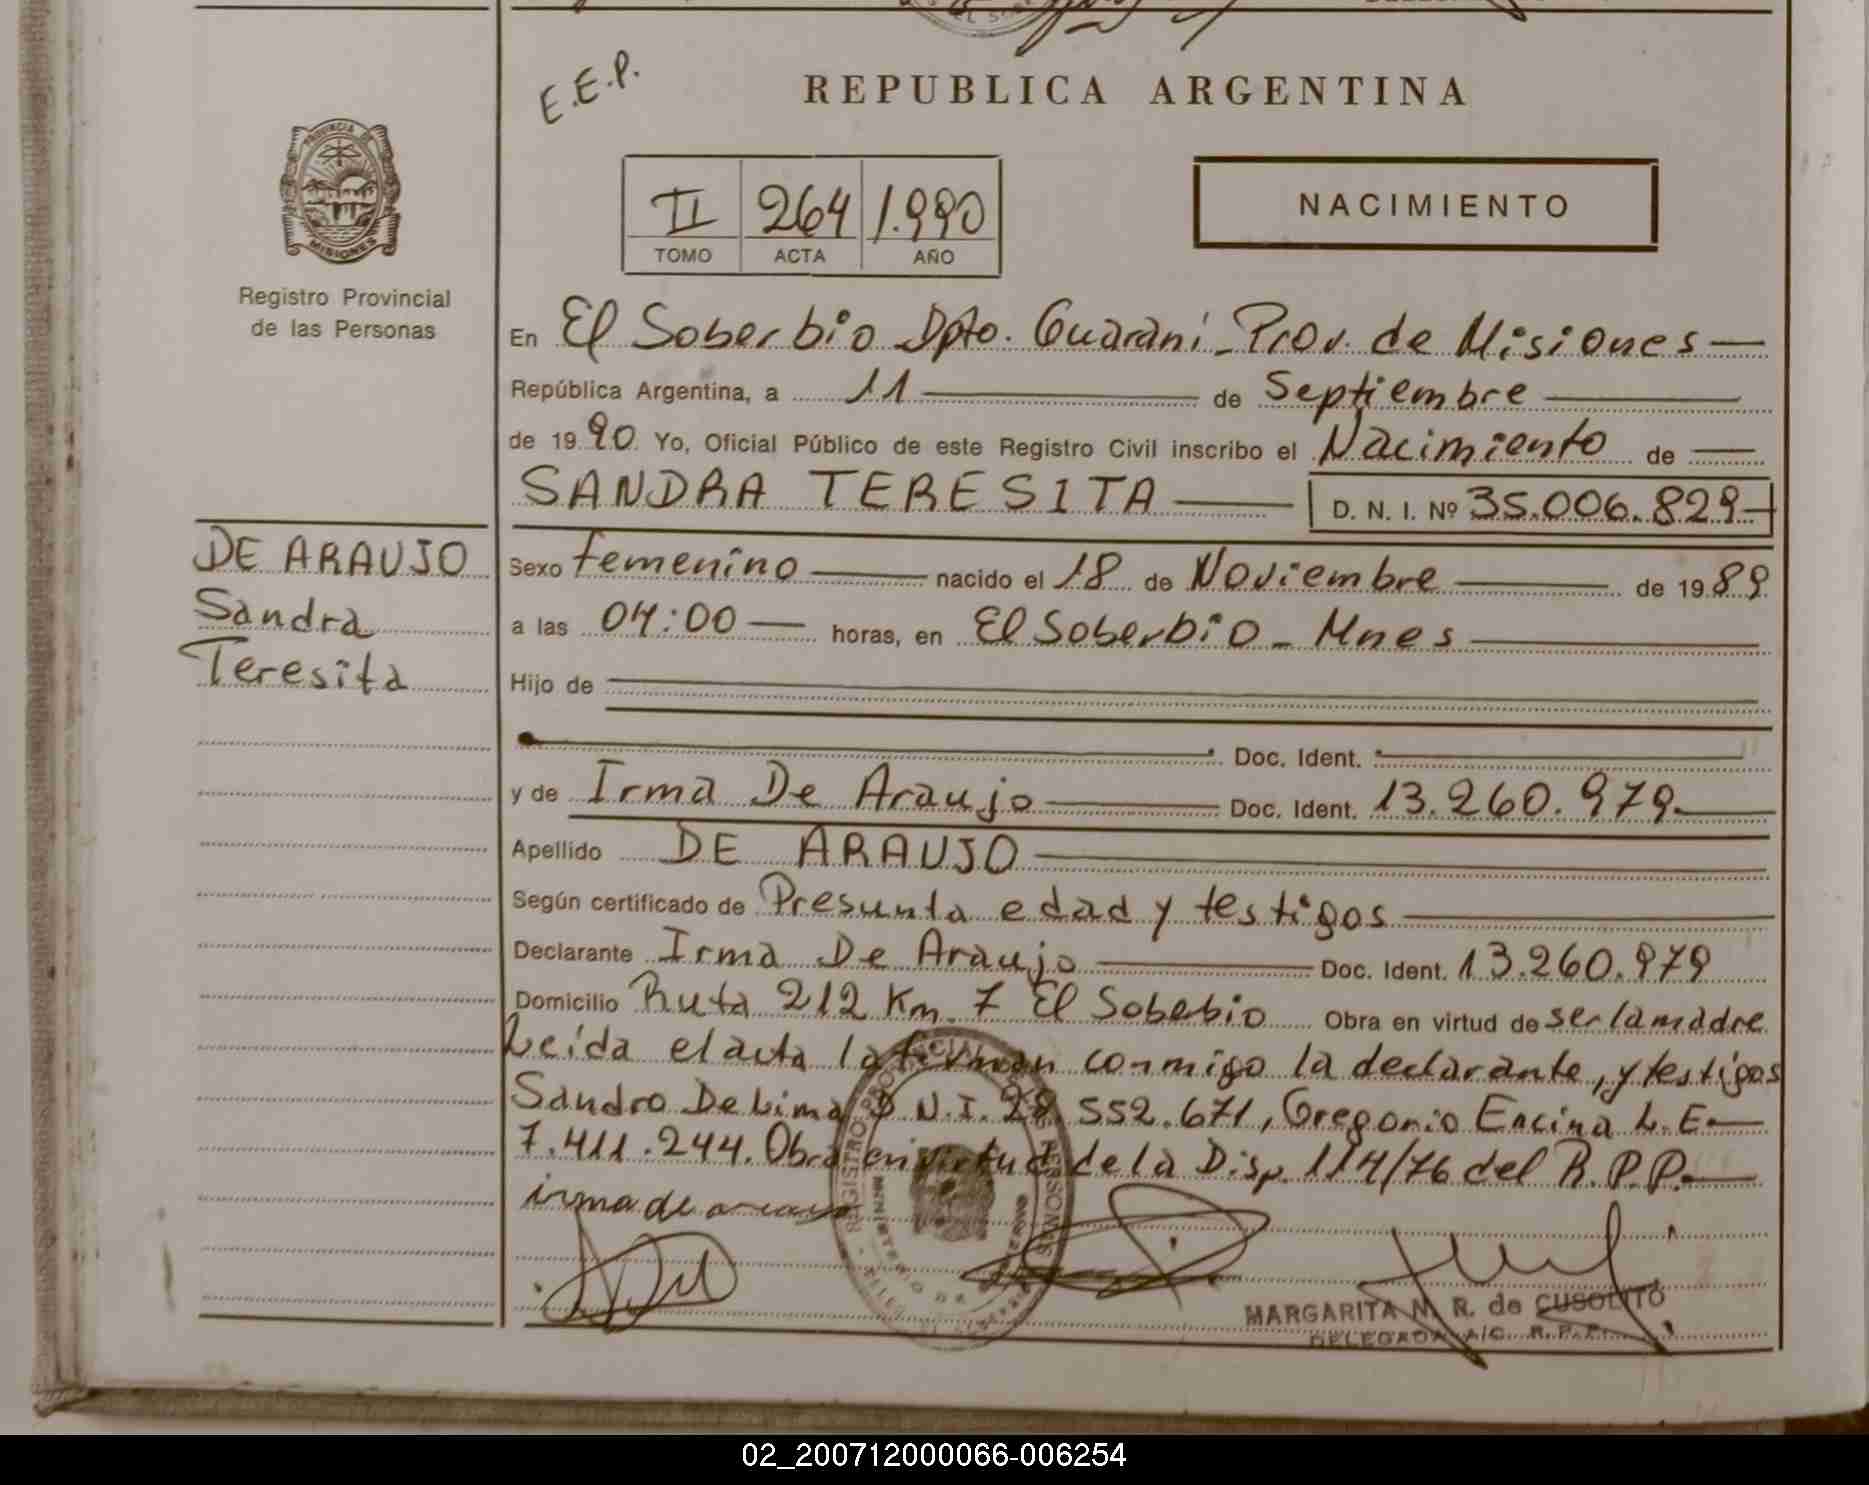 E.E.P.
REPUBLICA ARGENTINA
PROVINCIA DE
MISIONES
Registro Provincial
de las Personas
II 264 1.990
TOMO ACTA AÑO
NACIMIENTO
En El Soberbio Dpto. Guaraní _ Prov. de Misiones —
República Argentina, a 11 — de Septiembre —
de 1990 Yo, Oficial Público de este Registro Civil inscribo el Nacimiento de —
SANDRA TERESITA — D. N. I. Nº 35.006.829 —
DE ARAUJO
Sandra
Teresita
Sexo femenino — nacido el 18 de Noviembre — de 1989.
a las 04:00 — horas, en El Soberbio _ Mnes —
Hijo de —
— Doc. Ident. —
y de Irma De Araujo — Doc. Ident. 13.260.979.—
Apellido DE ARAUJO —
Según certificado de Presunta edad y testigos —
Declarante Irma De Araujo — Doc. Ident. 13.260.979
Domicilio Ruta 212 Km. 7 El Sobebio Obra en virtud de ser la madre
Leída el acta la firman conmigo la declarante, y testigos
Sandro De Lima D.N.I. 28.552.671, Gregorio Encina L.E.—
7.411.244. Obra en virtud de la Disp. 114/76 del R.P.P.—
irma de arauyo
REGISTRO PROVINCIAL DE LAS PERSONAS
MINISTERIO DE GOBIERNO
MARGARITA N. R. de CUSOLITO
DELEGADA A/C. R. P. P.
02_200712000066-006254